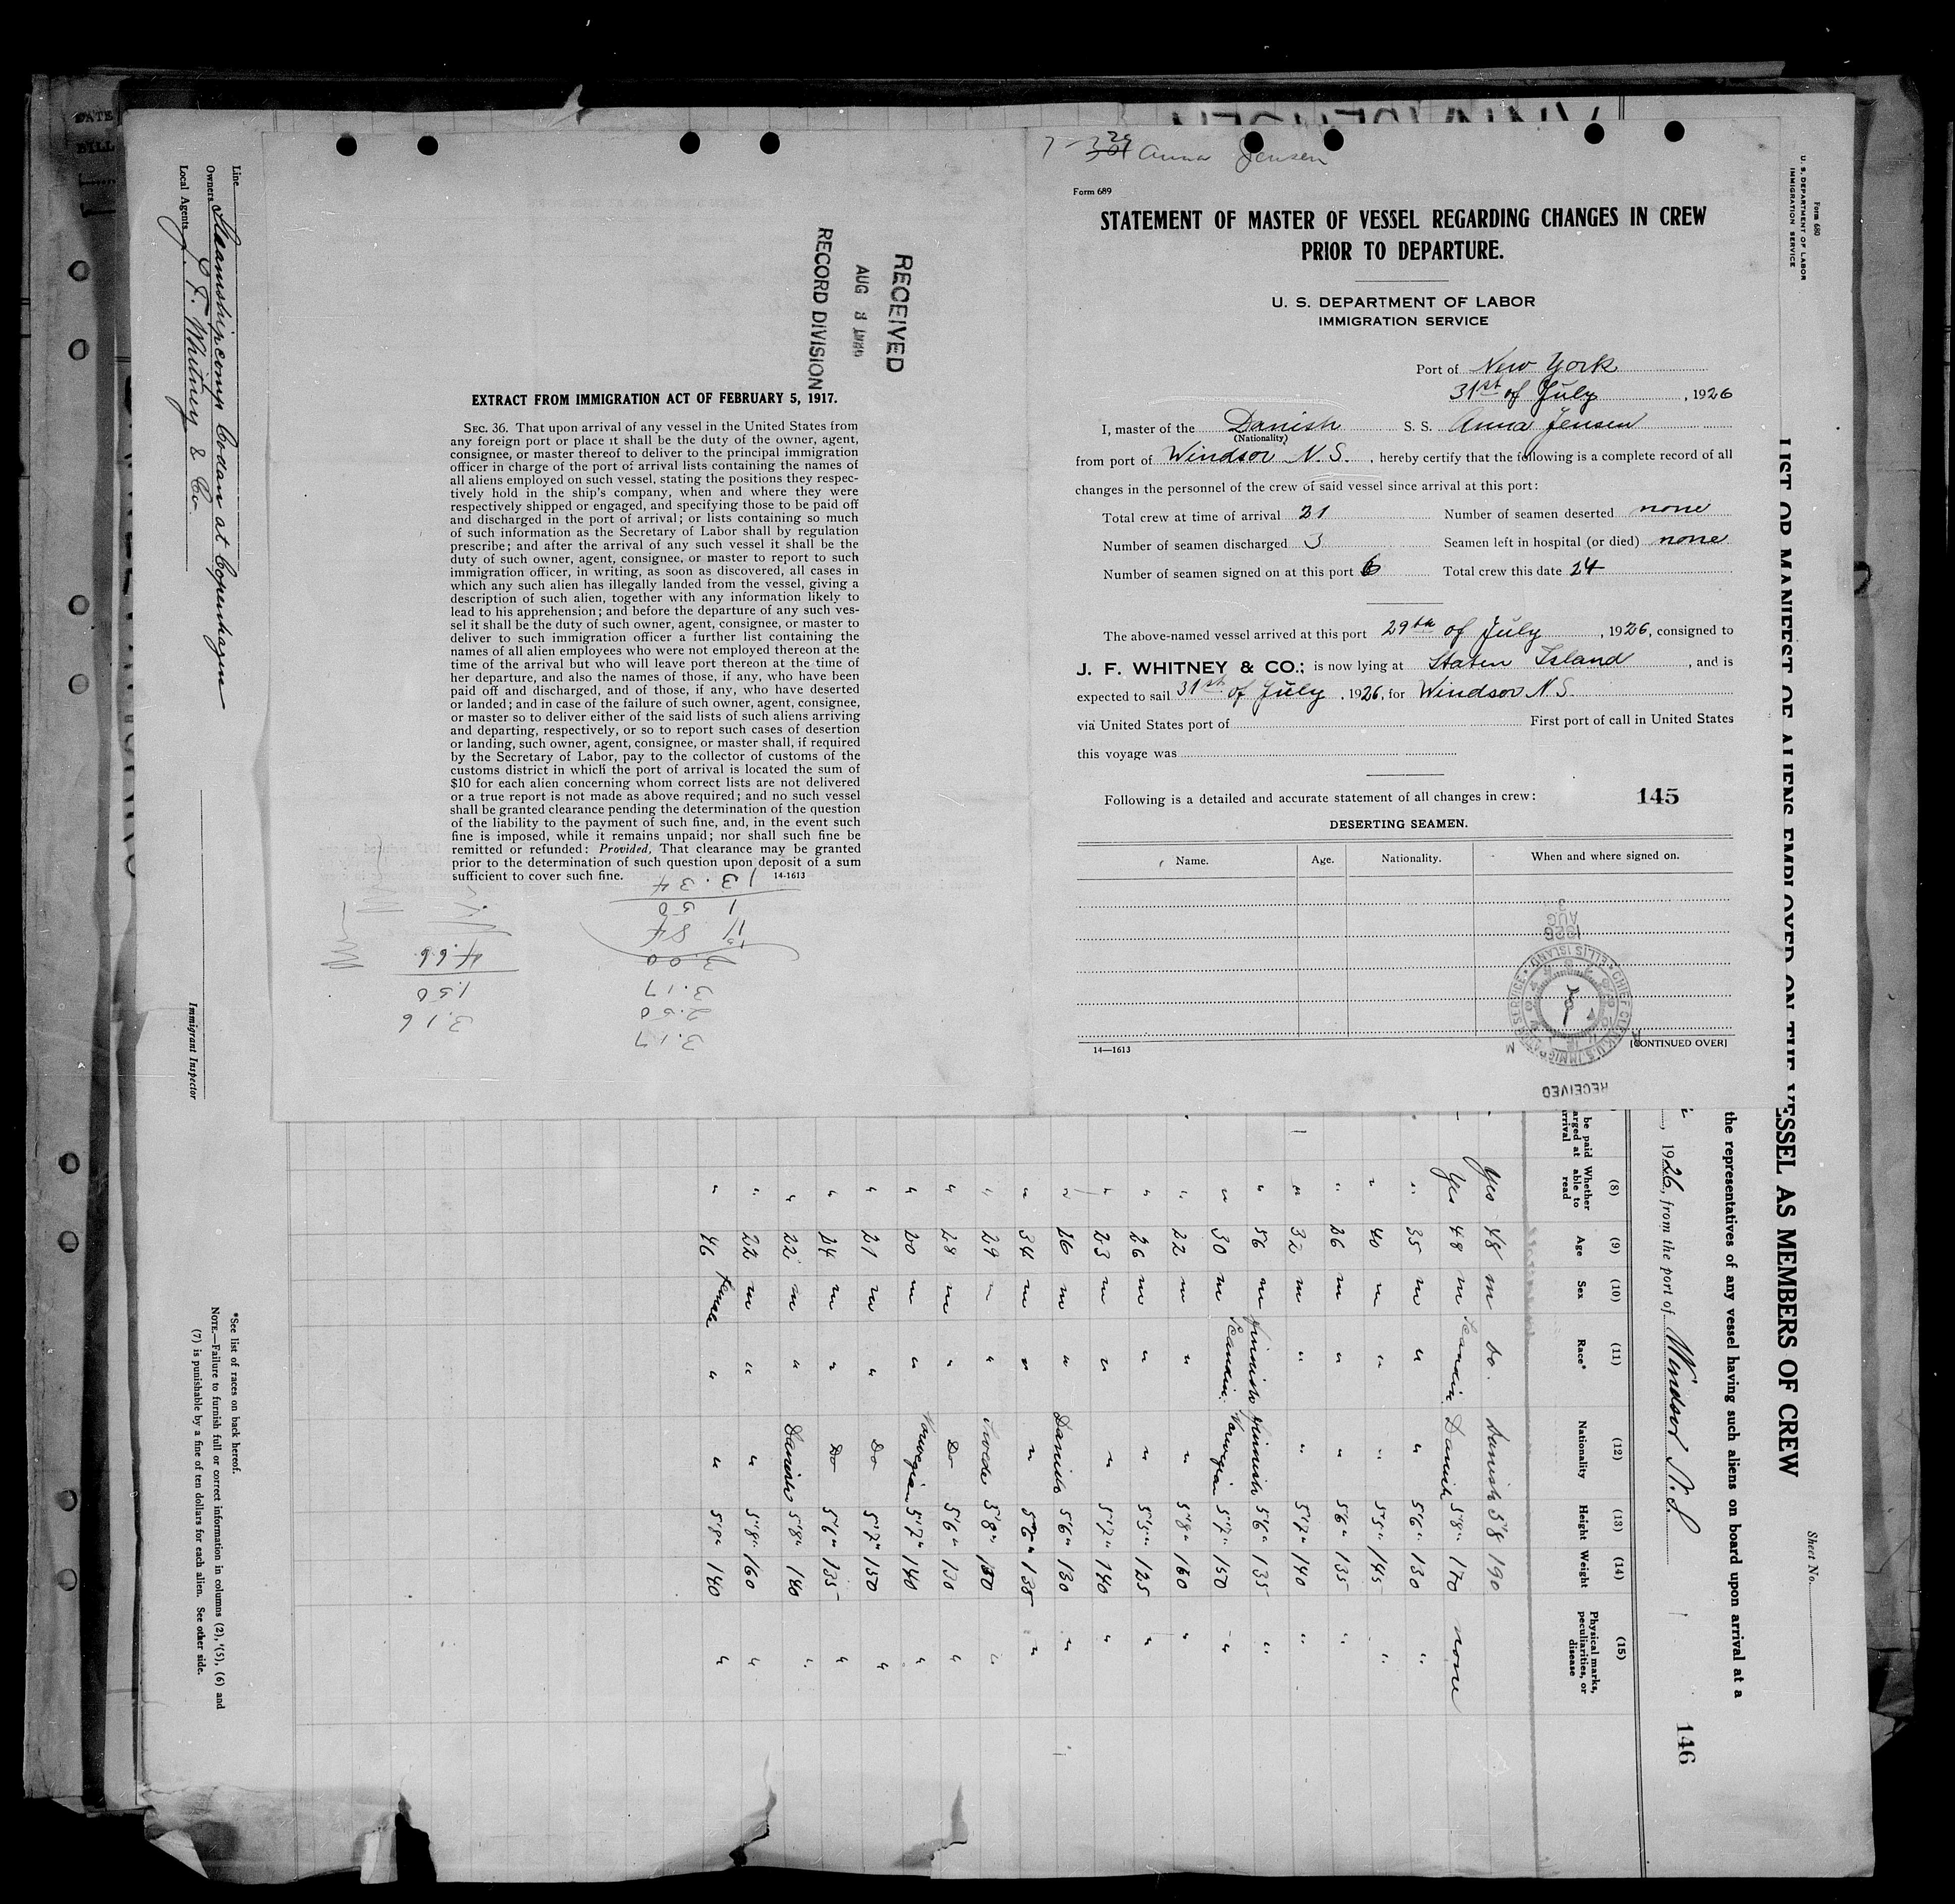 7-29 Anna Jensen
Form 689
STATEMENT OF MASTER OF VESSEL REGARDING CHANGES IN CREW
PRIOR TO DEPARTURE.
U. S. DEPARTMENT OF LABOR
IMMIGRATION SERVICE
Port of New York
31st of July, 1926
I, master of the Danish S. S. Anna Jensen
(Nationality)
from port of Windsor N.S., hereby certify that the following is a complete record of all
changes in the personnel of the crew of said vessel since arrival at this port:
Total crew at time of arrival 21 Number of seamen deserted none
Number of seamen discharged 3 Seamen left in hospital (or died) none
Number of seamen signed on at this port 6 Total crew this date 24
The above-named vessel arrived at this port 29th of July, 1926, consigned to
J. F. WHITNEY & CO.; is now lying at Staten Island, and is
expected to sail 31st of July, 1926, for Windsor N.S.
via United States port of First port of call in United States
this voyage was
Following is a detailed and accurate statement of all changes in crew: 145
DESERTING SEAMEN.
Name. Age. Nationality. When and where signed on.
14—1613 [CONTINUED OVER]
1926
AUG
3
CHIEF CLERK, U.S. IMMIGRATION SERVICE ELLIS ISLAND
RECEIVED
RECEIVED
AUG 3 1926
RECORD DIVISION
EXTRACT FROM IMMIGRATION ACT OF FEBRUARY 5, 1917.
SEC. 36. That upon arrival of any vessel in the United States from
any foreign port or place it shall be the duty of the owner, agent,
consignee, or master thereof to deliver to the principal immigration
officer in charge of the port of arrival lists containing the names of
all aliens employed on such vessel, stating the positions they respec-
tively hold in the ship's company, when and where they were
respectively shipped or engaged, and specifying those to be paid off
and discharged in the port of arrival; or lists containing so much
of such information as the Secretary of Labor shall by regulation
prescribe; and after the arrival of any such vessel it shall be the
duty of such owner, agent, consignee, or master to report to such
immigration officer, in writing, as soon as discovered, all cases in
which any such alien has illegally landed from the vessel, giving a
description of such alien, together with any information likely to
lead to his apprehension; and before the departure of any such ves-
sel it shall be the duty of such owner, agent, consignee, or master to
deliver to such immigration officer a further list containing the
names of all alien employees who were not employed thereon at the
time of the arrival but who will leave port thereon at the time of
her departure, and also the names of those, if any, who have been
paid off and discharged, and of those, if any, who have deserted
or landed; and in case of the failure of such owner, agent, consignee,
or master so to deliver either of the said lists of such aliens arriving
and departing, respectively, or so to report such cases of desertion
or landing, such owner, agent, consignee, or master shall, if required
by the Secretary of Labor, pay to the collector of customs of the
customs district in which the port of arrival is located the sum of
$10 for each alien concerning whom correct lists are not delivered
or a true report is not made as above required; and no such vessel
shall be granted clearance pending the determination of the question
of the liability to the payment of such fine, and, in the event such
fine is imposed, while it remains unpaid; nor shall such fine be
remitted or refunded: Provided, That clearance may be granted
prior to the determination of such question upon deposit of a sum
sufficient to cover such fine. 14-1613
3.17
2.50
3.17
3.00
11 84
1 50
13.34
3.16
1.50
4.66
Form 680
U. S. DEPARTMENT OF LABOR
IMMIGRATION SERVICE
Sheet No.
LIST OR MANIFEST OF ALIENS EMPLOYED ON THE VESSEL AS MEMBERS OF CREW
the representatives of any vessel having such aliens on board upon arrival at a
, 1926, from the port of Windsor N.S. 146
(8) (9) (10) (11) (12) (13) (14) (15)
Whether able to read Age Sex Race* Nationality Height Weight Physical marks, peculiarities, or disease
Yes 48 m Do. Danish 5'8 190
Yes 48 m Scandin. Danish 5'8" 170 none
" 35 m " " 5'6" 130 "
" 40 m " " 5'5" 145 "
" 26 m " " 5'6" 135 "
" 32 m " " 5'7" 140 "
" 56 m Finnish Finnish 5'6" 135 "
" 30 m Scandin. Norwegian 5'7" 150 "
" 22 m " " 5'8" 160 "
" 26 m " " 5'5" 125 "
" 23 m " " 5'7" 140 "
" 26 m " Danish 5'6" 130 "
" 34 m " " 5'6" 138 "
" 29 m " Swede 5'8" "
" 28 m " Do 5'6" 130 "
" 20 m " Norwegian 5'7" 140 "
" 21 m " Do 5'7" 150 "
" 24 m " Do 5'6" 135 "
" 22 m " Danish 5'8" 180 "
" 22 m " " 5'8" 160 "
" 46 female " " 5'8" 180 "
Line
Owners Steamshipcomp. Codan at Copenhagen
Local Agents J. F. Whitney & Co.
Immigrant Inspector
*See list of races on back hereof.
NOTE.—Failure to furnish full or correct information in columns (2), (5), (6) and
(7) is punishable by a fine of ten dollars for each alien. See other side.
DATE
BILL